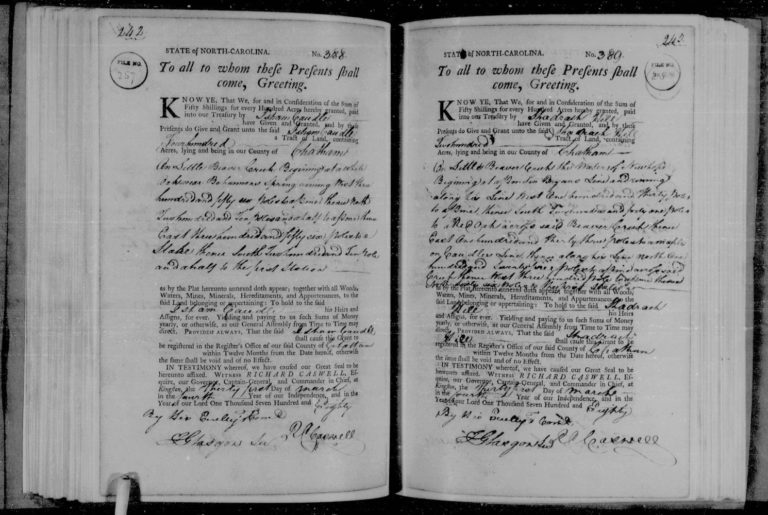 242
STATE of NORTH-CAROLINA. No. 388
FILE NO.
257
To all to whom theſe Preſents ſhall
come, Greeting.
KNOW YE, That We, for and in Conſideration of the Sum of
Fifty Shillings for every Hundred Acres hereby granted, paid
into our Treaſury by Isham Caudle
have Given and Granted, and by theſe
Preſents do Give and Grant unto the ſaid Isham Caudle
a Tract of Land, containing
hundred
Acres, lying and being in our County of Chatham
On Little Beaver Creek Beginning at a white
Spring runing West three
hundred and fifty six poles to a pine thence North
Two hundred and Ten poles and a half to a pine thence
East three hundred and fifty six poles to a
Stake thence South Two hundred and Ten poles
and a half to the first Station
as by the Plat hereunto annexed doth appear; together with all Woods,
Waters, Mines, Minerals, Hereditaments, and Appurtenances, to the
ſaid Land belonging or appertaining: To hold to the ſaid
Isham Caudle his Heirs and
Aſſigns, for ever. Yielding and paying to us ſuch Sums of Money
yearly, or otherwiſe, as our General Aſſembly from Time to Time may
direct. PROVIDED ALWAYS, That the ſaid Isham Caudle
ſhall cauſe this Grant to
be regiſtered in the Regiſter's Office of our ſaid County of Chatham
within Twelve Months from the Date hereof, otherwiſe
the ſame ſhall be void and of no Effect.
IN TESTIMONY whereof, we have cauſed our Great Seal to be
hereunto affixed. WITNESS RICHARD CASWELL, Eſ-
quire, our Governor, Captain-General, and Commander in Chief, at
Kingſton, the Thirty first Day of March
in the fourth Year of our Independence, and in the
Year of our Lord One Thouſand Seven Hundred and Eighty
By His Excely's Comd
J Glasgow Sec Rd Caswell
243
STATE of NORTH-CAROLINA. No. 389
FILE NO.
To all to whom theſe Preſents ſhall
come, Greeting.
KNOW YE, That We, for and in Conſideration of the Sum of
Fifty Shillings for every Hundred Acres hereby granted, paid
into our Treaſury by Shadrach Hill
have Given and Granted, and by theſe
Preſents do Give and Grant unto the ſaid Shadrach Hill
a Tract of Land, containing
Two hundred
Acres, lying and being in our County of Chatham
On Little Beaver Creek the Waters of Newhope
Beginning at a in Bryans Line and runing
along his Line West One hundred and Thirty poles
to a pine thence South Two hundred and forty one poles
to a Red Oak across said Beaver Creek thence
East One hundred and thirty three poles to a maple
on Caudles Line thence along his Line North One
hundred and poles to a said
Creek thence West three poles thence
North poles to the first Station
as by the Plat hereunto annexed doth appear; together with all Woods,
Waters, Mines, Minerals, Hereditaments, and Appurtenances, to the
ſaid Land belonging or appertaining: To hold to the ſaid Shadrach
Hill his Heirs
and Aſſigns, for ever. Yielding and paying to us ſuch Sums of Money
yearly, or otherwiſe, as our General Aſſembly from Time to Time may
direct. PROVIDED ALWAYS, That the ſaid Shadrach
Hill ſhall cauſe this Grant to be
regiſtered in the Regiſter's Office of our ſaid County of Chatham
within Twelve Months from the Date hereof, otherwiſe
the ſame ſhall be void and of no Effect.
IN TESTIMONY whereof, we have cauſed our Great Seal to be
hereunto affixed. WITNESS RICHARD CASWELL, Eſ-
quire, our Governor, Captain-General, and Commander in Chief, at
Kingſton, the Thirty first Day of March
in the fourth Year of our Independence, and in the
Year of our Lord One Thouſand Seven Hundred and Eighty
By His Excely's Comd
J Glasgow Sec Rd Caswell